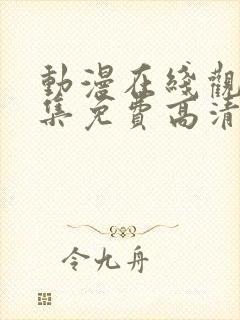 動漫在綫觀
集免費高清
令九舟